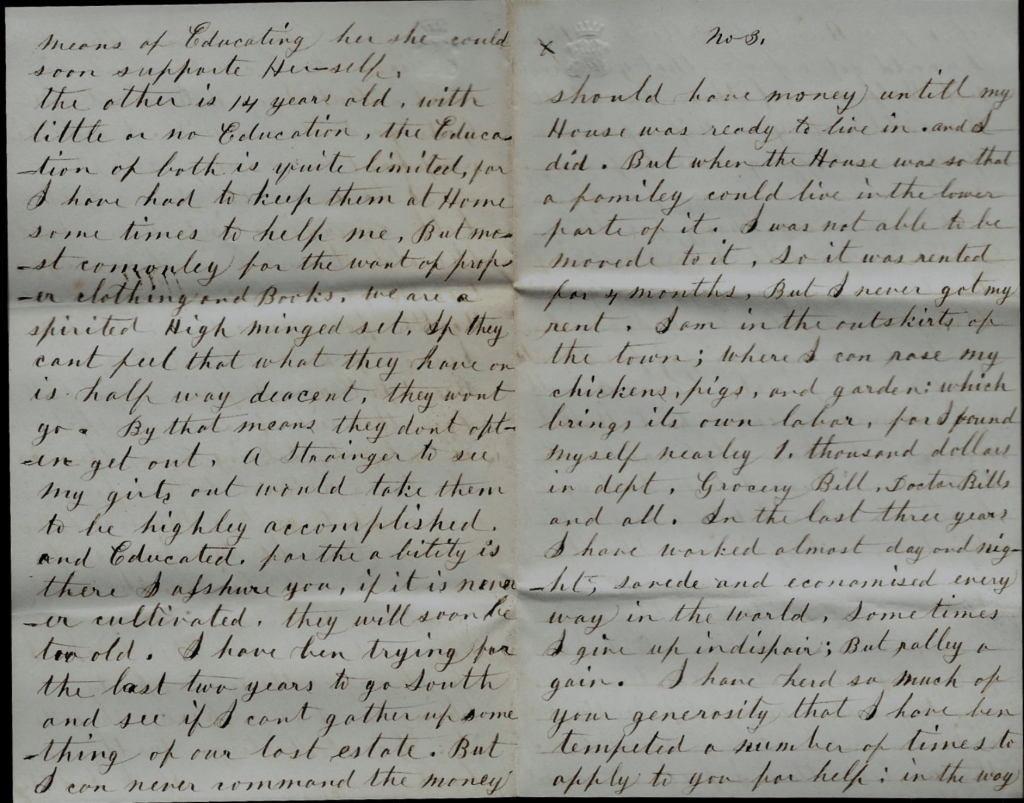 means of Educating her she could
soon supporte Her-self.
the other is 14 years old, with
little or no Education, the Educa-
-tion of both is quite limited, for
I have had to keep them at Home
some times to help me, But mo-
-st comonley for the want of prop-
-er clothing and Books. we are a
spirited High minged set. If they
cant feel that what they have on
is half way deacent, they wont
go. By that means they dont oft-
-en get out. A Strainger to see
my girls out would take them
to be highley accomplished.
and Educated. for the abitity is
there I asshure you, if it is never
-er cultivated. they will soon be
too old. I have ben trying for
the last two years to go South
and see if I cant gather up some
-thing of our last estate. But
I can never command the money
x No 3.
should have money untill my
House was ready to live in. and I
did. But when the House was so that
a familey could live in the lower
parte of it. I was not able to be
movede to it, So it was rented
for 4 months, But I never got my
rent. I am in the outskirts of
the town; where I can rase my
chickens, pigs, and garden: which
brings its own labor, for I found
myself nearley 1. thousand dollars
in dept, Grocery Bill, Doctor Bills
and all. In the last three years
I have worked almost day and nig-
-ht, savede and economised every
way in the world, Some times
I give up in dispair; But ralley a
gain. I have herd so much of
your generosity that I have ben
tempeted a number of times to
apply to you for help: in the way